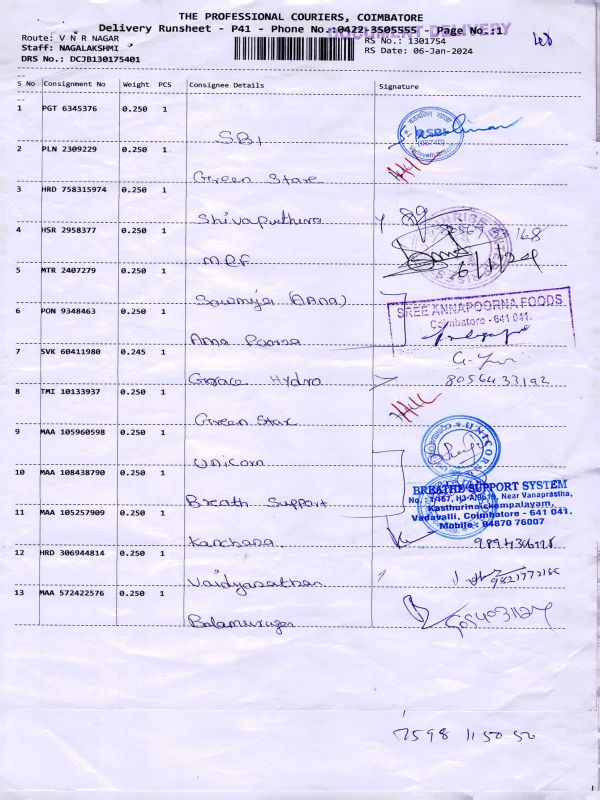 THE PROFESSIONAL COURIERS, COIMBATORE
DOCUMENT-DELIVERY
Delivery Runsheet - P41 - Phone No.:0422-3505555 Page No.:1
Route: V N R NAGAR
RS No.: 1301754
Staff: NAGALAKSHMI
RS Date: 06-Jan-2024
DRS No.: DCJB130175401
S No Consignment No Weight PCS Consignee Details Signature
1 PGT 6345376 0.250 1
SBI
SBI
(05740)
2 PLN 2309229 0.250 1
Green Stare
3 HRD 758315974 0.250 1
Shivaputhira
4 HSR 2958377 0.250 1
MRF
6/1/24
5 MTR 2407279 0.250 1
Sowmiya (Anna)
SREE ANNAPOORNA FOODS
Coimbatore - 641 041.
6 PON 9348463 0.250 1
Anna Poorna
7 SVK 60411980 0.245 1
Grace Hydro
8056433192
8 TMI 10133937 0.250 1
Green Star
9 MAA 105960598 0.250 1
Unicorn
UNICOR
10 MAA 108438790 0.250 1
Breath Support
BREATHE SUPPORT SYSTEM
Near Vanaprastha,
Kasthurinaickenpalayam,
Vadavalli, Coimbatore - 641 041.
Mobile : 94870 76007
11 MAA 105257909 0.250 1
Kanchana
12 HRD 306944814 0.250 1
Vaidyanathan
13 MAA 572422576 0.250 1
Balamurugan
7598 115050